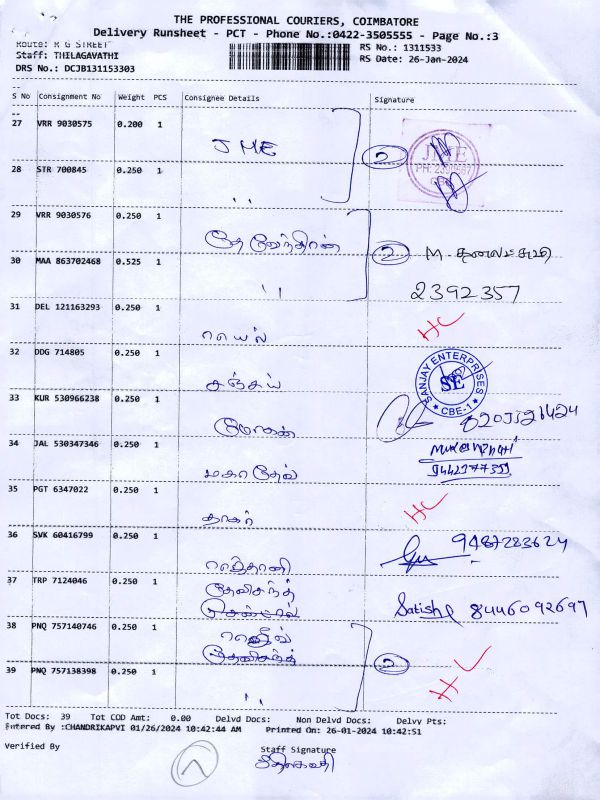 THE PROFESSIONAL COURIERS, COIMBATORE
Delivery Runsheet - PCT - Phone No.:0422-3505555 - Page No.:3
Route: R G STREET
RS No.: 1311533
Staff: THILAGAVATHI
RS Date: 26-Jan-2024
DRS No.: DCJB131153303
S No Consignment No Weight PCS Consignee Details Signature
27 VRR 9030575 0.200 1
JME
2
JME
28 STR 700845 0.250 1
,,
29 VRR 9030576 0.250 1
தேவேந்திரன்
2 M.
30 MAA 863702468 0.525 1
,,
2392357
31 DEL 121163293 0.250 1
HC
32 DDG 714805 0.250 1
சஞ்சய்
SANJAY ENTERPRISES
SE
CBE-1
33 KUR 530966238 0.250 1
மோகன்
34 JAL 530347346 0.250 1
மகாதேவ்
35 PGT 6347022 0.250 1
தாகர்
HC
36 SVK 60416799 0.250 1
9487283624
37 TRP 7124046 0.250 1
Satish 8446092697
38 PNQ 757140746 0.250 1
2
HC
39 PNQ 757138398 0.250 1
,,
Tot Docs: 39 Tot COD Amt: 0.00 Delvd Docs: Non Delvd Docs: Delvy Pts:
Entered By :CHANDRIKAPVI 01/26/2024 10:42:44 AM Printed On: 26-01-2024 10:42:51
Verified By
Staff Signature